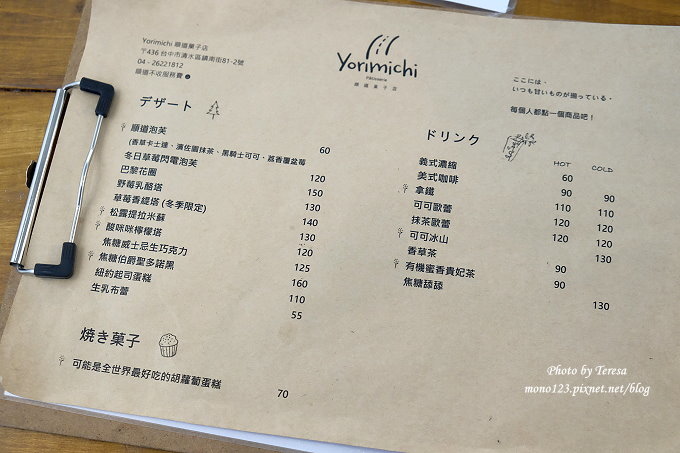 Yorimichi 順道菓子店
〒436 台中市清水區鎮南街81-2號
04 - 26221812
順道不收服務費
Yorimichi
Pâtisserie
順道菓子店
ここには、
いつも甘いものが揃っている。
每個人都點一個商品吧！
デザート
順道泡芙 60
(香草卡士達、濃佐園抹茶、黑騎士可可、荔香覆盆莓
冬日草莓閃電泡芙 120
巴黎花圈 150
野莓乳酪塔 130
草莓香緹塔 (冬季限定) 140
松露提拉米蘇 130
酸咪咪檸檬塔 120
焦糖威士忌生巧克力 125
焦糖伯爵聖多諾黑 160
紐約起司蛋糕 110
生乳布蕾 55
焼き菓子
可能是全世界最好吃的胡蘿蔔蛋糕 70
ドリンク
HOT COLD
義式濃縮 60
美式咖啡 90 90
拿鐵 110 110
可可歐蕾 120 120
抹茶歐蕾 120 120
可可冰山 130
香草茶 90
有機蜜香貴妃茶 90
焦糖舔舔 130
Photo by Teresa
mono123.pixnet.net/blog